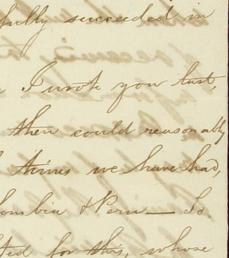 fully succeeded in
I wrote you last,
then could reasonably
times we have had,
ombia & Peru — So
ted for this, whose